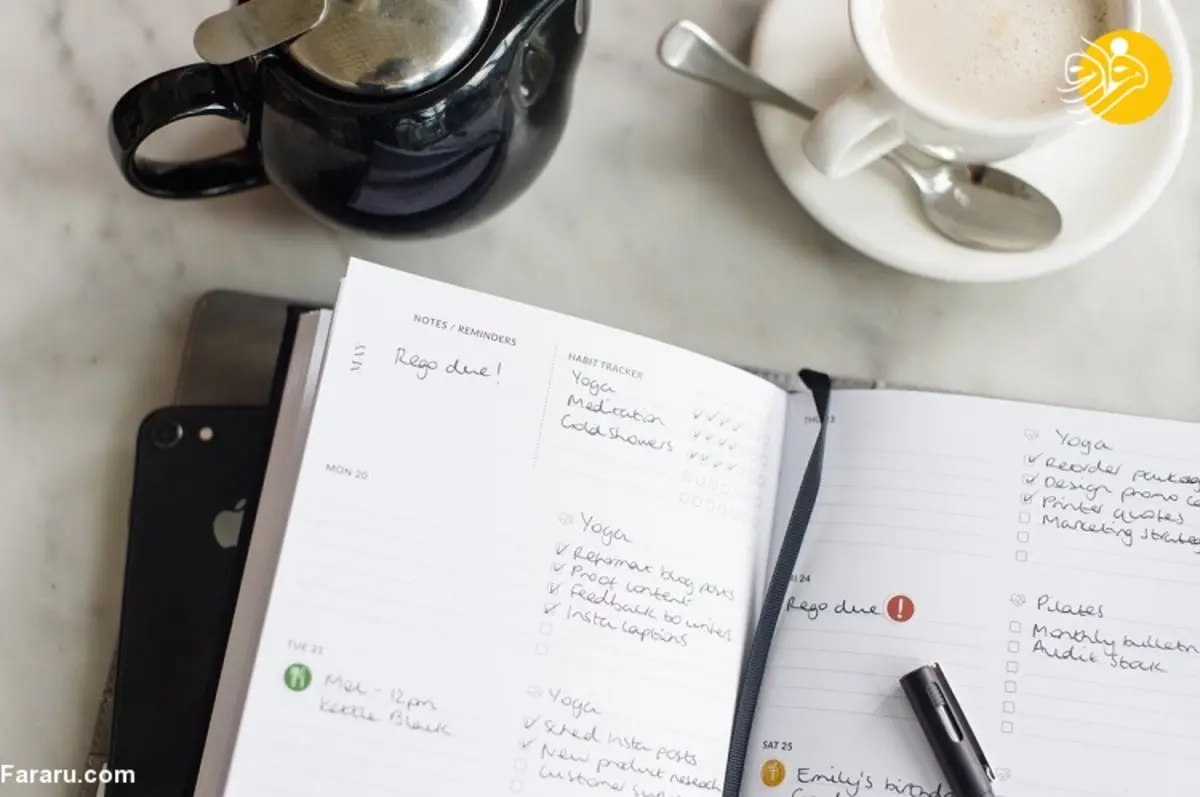 NOTES / REMINDERS
MAY
Rego due!
HABIT TRACKER
Yoga
Meditation
Cold showers
MON 20
Yoga
Reformat blog posts
Proof content
Feedback to writers
Insta captions
TUE 21
Mel - 12pm
Kettle Black
Yoga
Sched insta posts
New product research
Customer
THU 23
Yoga
Reorder
Design promo
Printer quotes
Marketing
24
Rego due
Pilates
Monthly
Audit stock
SAT 25
Emily's
Fararu.com